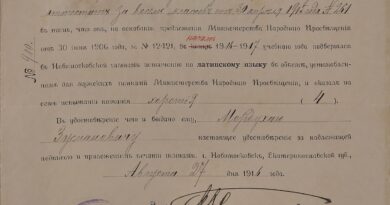 за
въ томъ, что онъ, на основаніи предложенія Министерства Народнаго Просвѣщенія
отъ 30 іюня 1906 года, за № 12421, въ началѣ 1916-1917 учебнаго года подвергался
въ Новомосковской гимназіи испытанію по латинскому языку въ объемѣ, установлен-
номъ для мужскихъ гимназій Министерства Народнаго Просвѣщенія, и оказалъ на
семъ испытаніи познанія хорошія (4).
Въ удостовѣреніе чего и выдано ему,
настоящее удостовѣреніе за надлежащей
подписью и приложеніемъ печати гимназіи. г. Новомосковскъ, Екатеринославской губ.,
Августа 27 дня 1916 года.